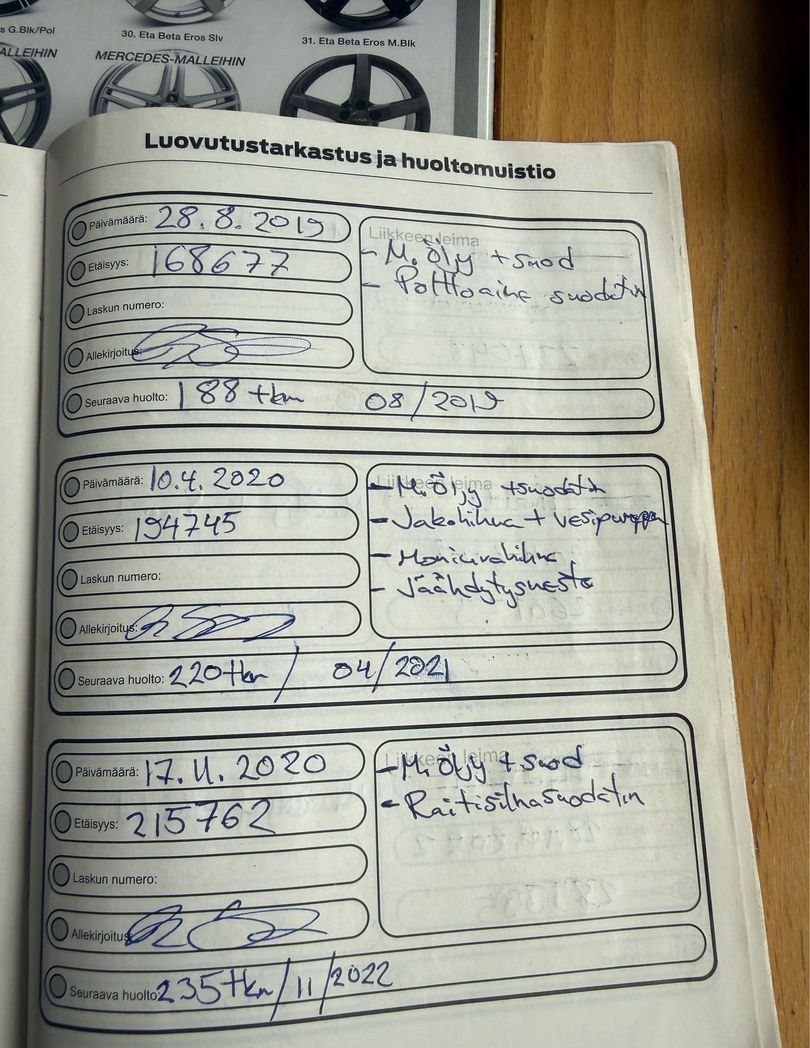 s G.Blk/Pol
30. Eta Beta Eros Slv
31. Eta Beta Eros M.Blk
ALLEIHIN
MERCEDES-MALLEIHIN
Luovutustarkastus ja huoltomuistio
Päivämäärä: 28.8.2019
Etäisyys: 168677
Laskun numero:
Allekirjoitus:
Seuraava huolto: 188 tkm 08/2019
Liikkeen leima
- M.Öljy + suod
- Polttoaine suodatin
Päivämäärä: 10.4.2020
Etäisyys: 194745
Laskun numero:
Allekirjoitus:
Seuraava huolto: 220 tkm / 04/2021
Liikkeen leima
- M.Öljy + suodatin
- Jakohihna + vesipumppu
- Moniurahihna
- Jäähdytysneste
Päivämäärä: 17.11.2020
Etäisyys: 215762
Laskun numero:
Allekirjoitus
Seuraava huolto: 235 tkm / 11 / 2022
Liikkeen leima
- M.Öljy + suod
- Raitisilmasuodatin